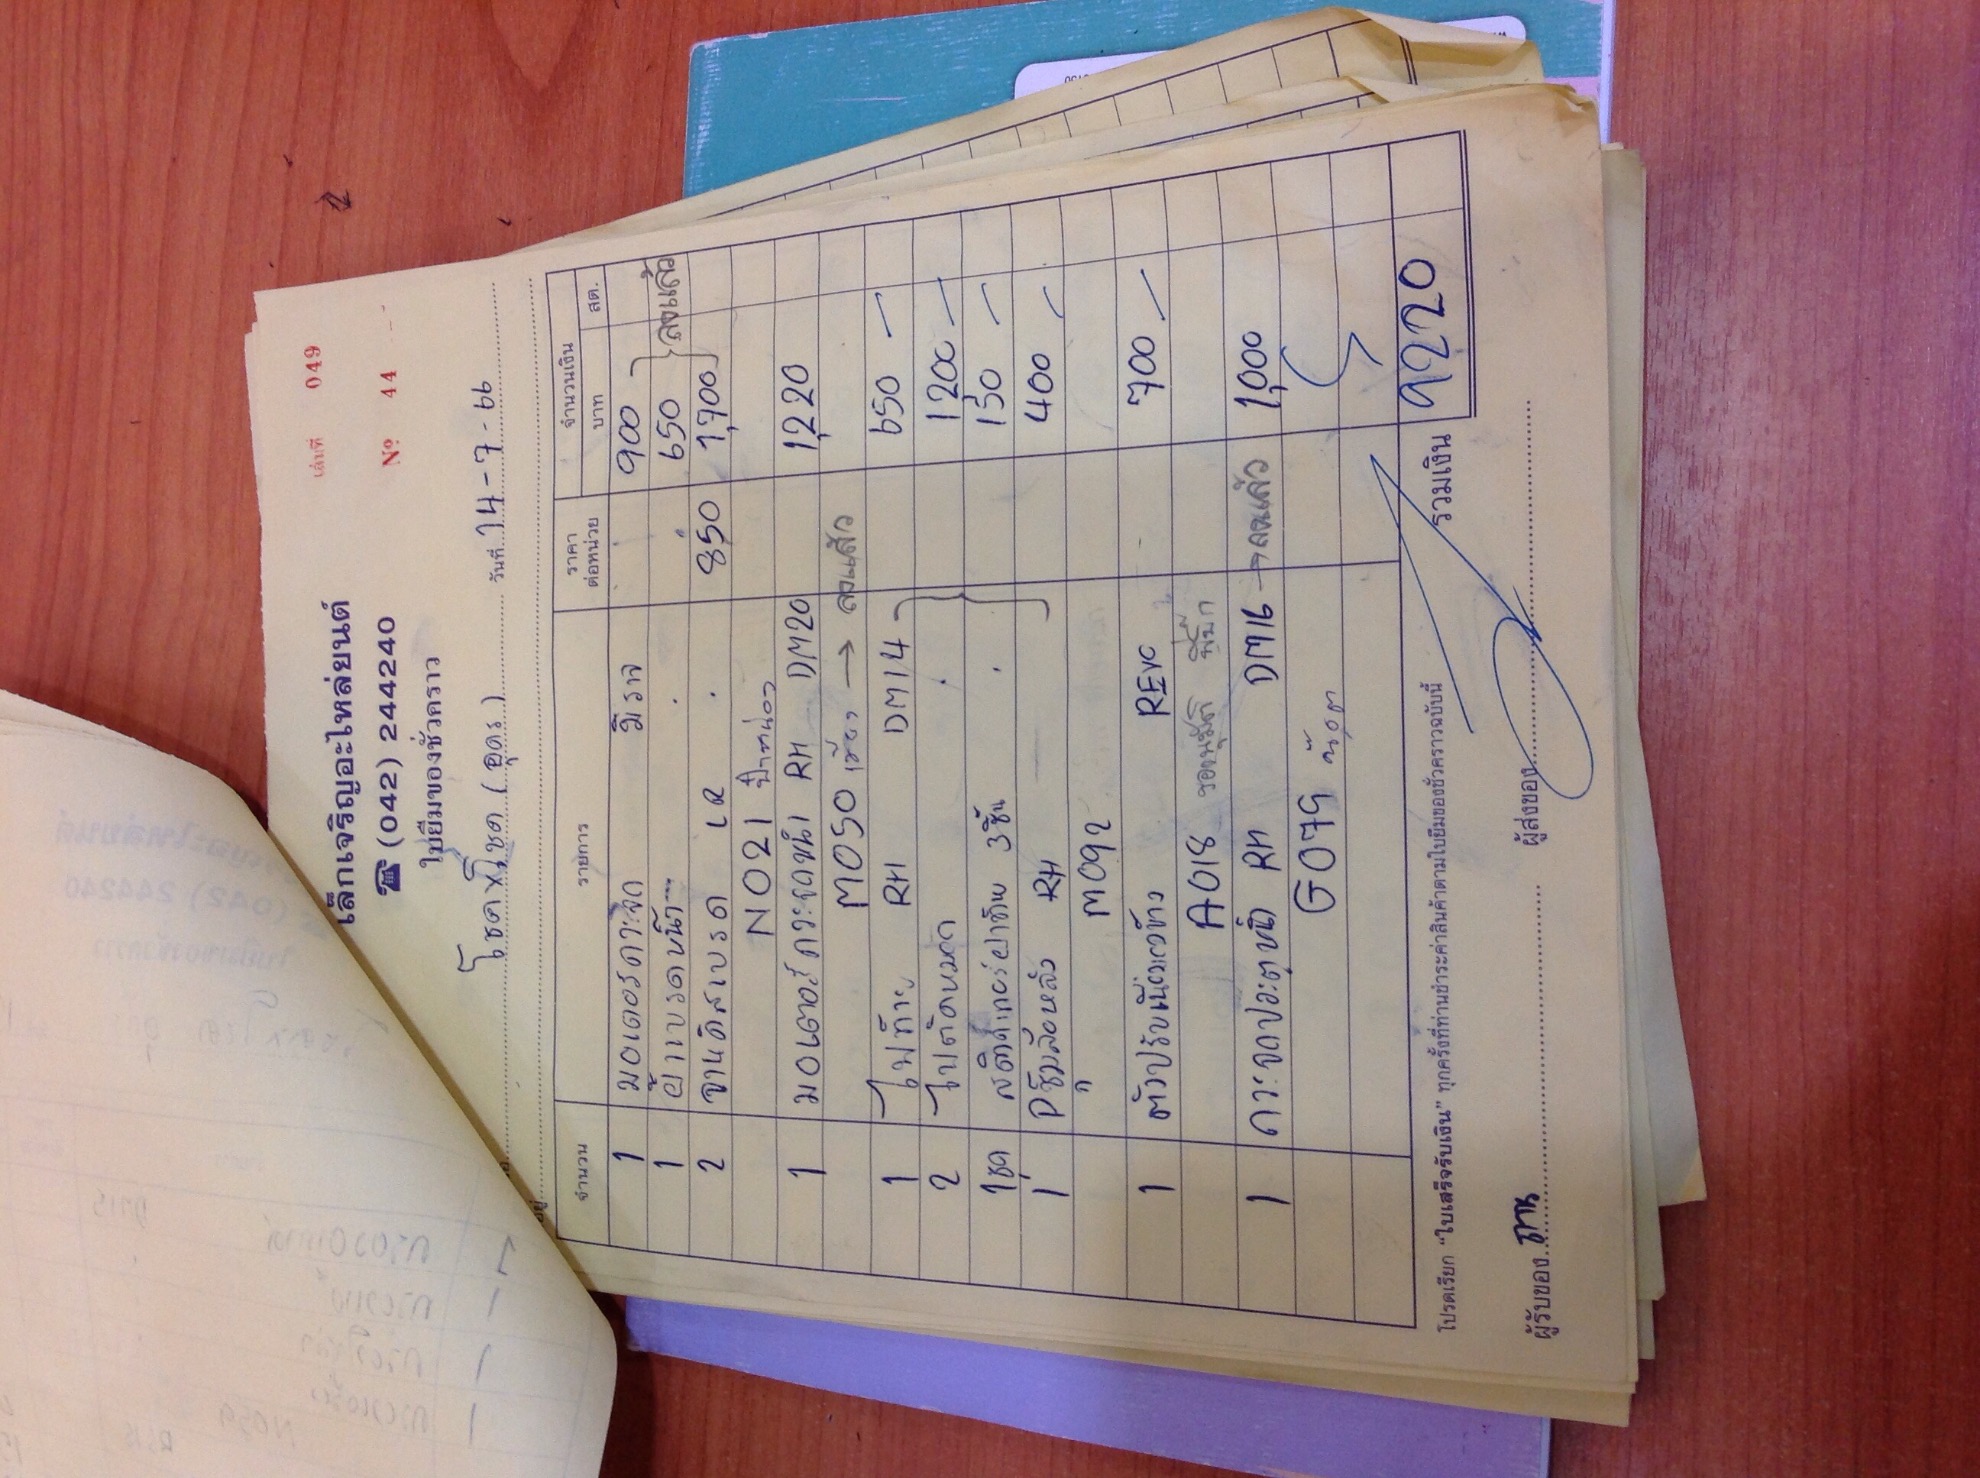 เล่มที่ 049
เล็กเจริญอะไหล่ยนต์
☎ (042) 244240
Nº 44
ใบยืมของชั่วคราว
วันที่ 14-7-66
(อุดร)
จำนวน รายการ ราคาต่อหน่วย จำนวนเงิน บาท สต.
1 มอเตอร์กระจก มิราจ 900
1 ผ้าเบรคหน้า 650 ลงแล้ว
2 จานดิสเบรค LR 850 1,700
N021
1 มอเตอร์กระจกหน้า RH DM20 1,220
M050 เขียว → ลงแล้ว
1 ไฟท้าย RH DM14 650 –
2 ไฟตัดหมอก 1200 –
1ชุด สติกเกอร์ฝาท้าย 3ชิ้น 150 –
1 หลัง RH 400 –
M092
1 REVO 700 –
A018
1 กระจกประตูหน้า RH DM16 → ลงแล้ว 1,000
G079 น๊อต
รวมเงิน 9220
โปรดเรียก "ใบเสร็จรับเงิน" ทุกครั้งที่ท่านชำระค่าสินค้าตามใบยืมของชั่วคราวฉบับนี้
ผู้รับของ ผู้ส่งของ